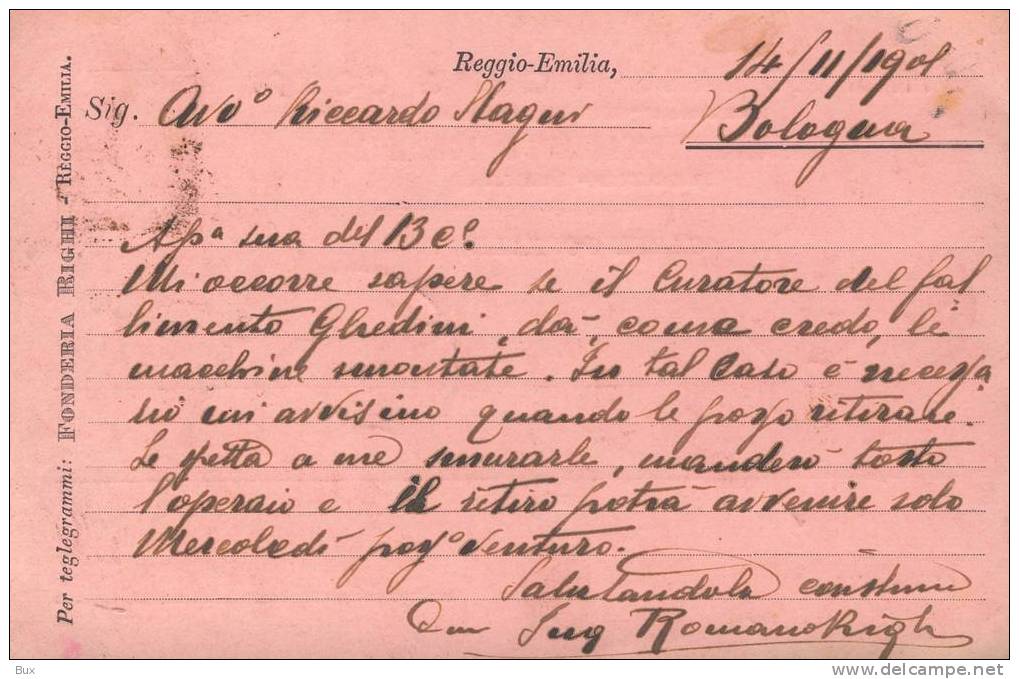 Per teglegrammi: FONDERIA RIGHI - REGGIO-EMILIA.
Reggio-Emilia, 14/11/1901
Sig. Avvo Riccardo
Bologna
Apa sua del 13 co.
Mi occorre sapere se il Curatore del fal
limento Ghedini, dà, come credo, le
macchine smontate. In tal caso è necessa
rio mi avvisino quando le posso ritirare.
Se spetta a me smurarle, manderò tosto
l'operaio e il ritiro potrà avvenire solo
Mercoledì possо venturo.
Salutandola
Ing Romano Righi
Bux
www.delcampe.net